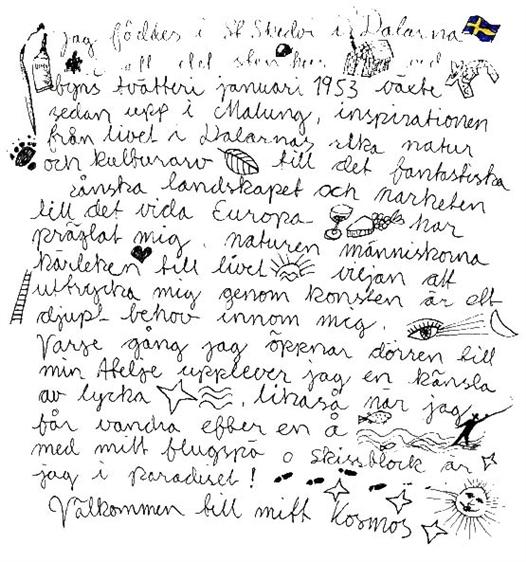 jag föddes i St Skedvi i Dalarna
i ett det sten hus ved
byns tvätteri januari 1953 växte
sedan upp i Malung, inspirationen
från livet i Dalarnas rika natur
och kulturarv till det fantastiska
skånska landskapet och närheten
till det vida Europa har
präglat mig. naturen människorna
kärleken till livet viljan att
uttrycka mig genom konsten är ett
djupt behov innom mig.
Varge gång jag öppnar dörren till
min Atelje upplever jag en känsla
av lycka, likaså när jag
får vandra efter en å
med mitt flugspö o skissblock är
jag i paradiset!
Välkommen till mitt Kosmos